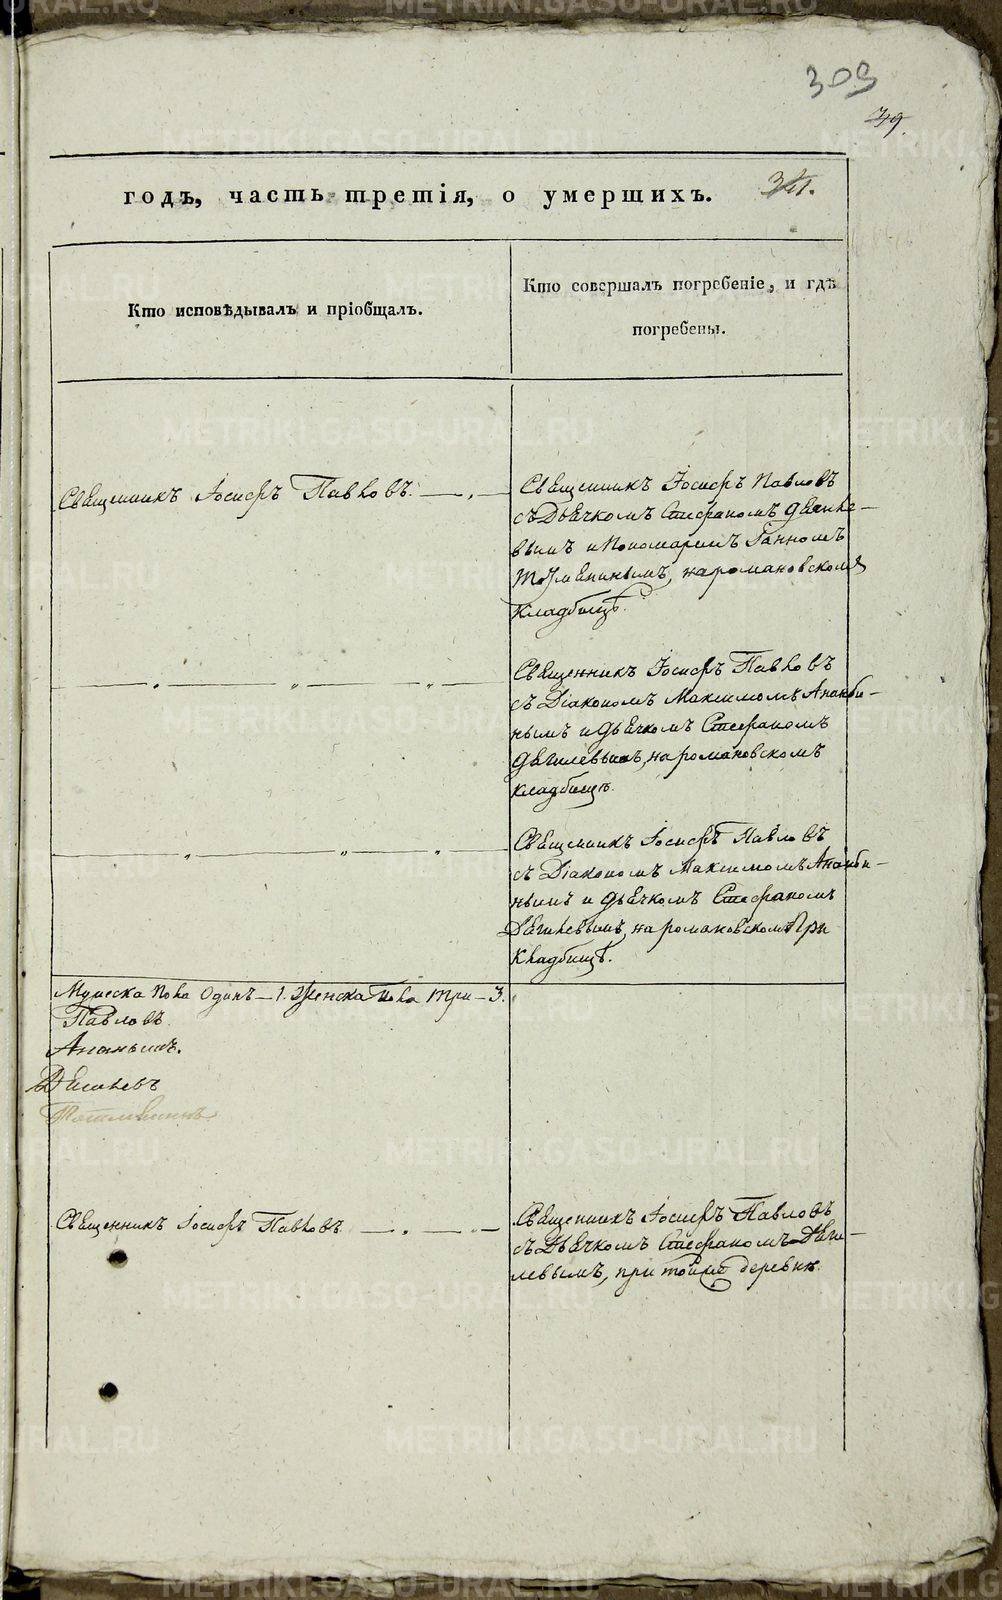 309
39.
годъ, часть третія, о умершихъ.
34.
Кто исповѣдывалъ и пріобщалъ.
Кто совершалъ погребеніе, и гдѣ
погребены.
Священникъ Іосифъ Павловъ.
Священникъ Іосифъ Павловъ
съ Дьячкомъ Стефаномъ Дягиле-
вымъ и Пономаремъ
на романовскомъ
кладбищѣ.
Священникъ Іосифъ Павловъ
съ Діакономъ Максимомъ Ананьи-
нымъ и дьячкомъ Стефаномъ
Дягилевымъ, на романовскомъ
кладбищѣ.
Священникъ Іосифъ Павловъ
съ Діакономъ Максимомъ Ананьи-
нымъ и дьячкомъ Стефаномъ
Дягилевымъ, на романовскомъ при
Кладбищѣ.
Мужеска пола Одинъ - 1. Женска пола три - 3.
Павловъ.
Ананьинъ.
Дягилевъ
Священникъ Іосифъ Павловъ
Священникъ Іосифъ Павловъ
съ Дьячкомъ Стефаномъ Дяги-
левымъ, при тойже деревнѣ.
METRIKI.GASO-URAL.RU